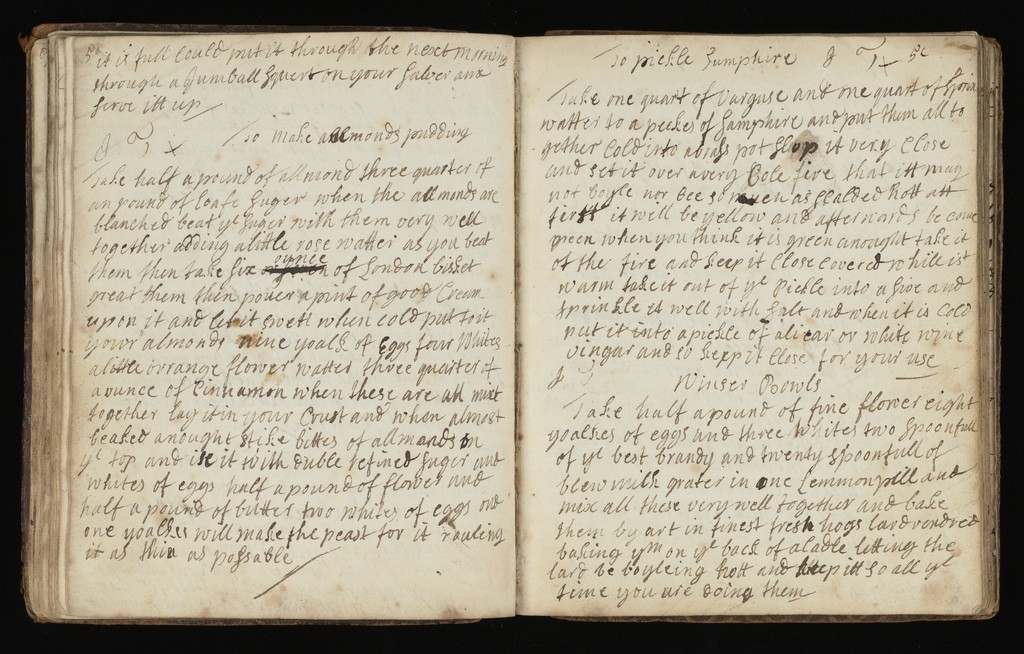 it is full could put it through the next morning
through a Jumball squert on your salver and
serve itt up
To make allmonds pudding
Take half a pound of allmond three quarter of
an pound of loafe suger when the allmonds are
blanched beat ye suger with them very well
together adding a little rose watter as you beat
them then take six ounce of London bisket
great them then power a pint of good Cream
upon it and let it swell when cold put to it
your almonds nine yoalk of Eggs four Whites
a little orrange flower watter three quarter of
a ounce of Cinnamon when these are all mixt
together lay it in your Crust and when almost
beaked anought stike bittes of allmands on
ye top and ise it with duble refined suger and
whites of eggs half a pound of flower and
half a pound of butter two whites of eggs and
one yoalks will make the peast for it rouling
it as thin as possable
To pickle Samphire
Take one quart of Varguse and one quart of spring
watter to a peckes of Samphire and put them all to
gether Cold into a brass pot stop it very Close
and set it over a very Cole fire that itt may
not Boyle nor bee so much as scalded hott att
first it well be yellow and afterwards be come
green when you think it is green anought take it
of the fire and keep it Close Covered while ist
warm take it out of ye Pickle into a sive and
sprinkle it well with salt and when it is Cold
put it into a pickle of alicar or white wine
vingar and so keep it Close for your use
Winser Bowls
Take half a pound of fine flower eight
yoalkes of eggs and three whites two spoonfull
of ye best brandy and twenty spoonfull of
blew milk grater in one Lemmon pill and
mix all these very well together and bake
them by art in finest fresh hogs lard rendred
baking ym on ye back of a ladle letting the
lard be boyleing hott and keep itt so all ye
time you are doing them